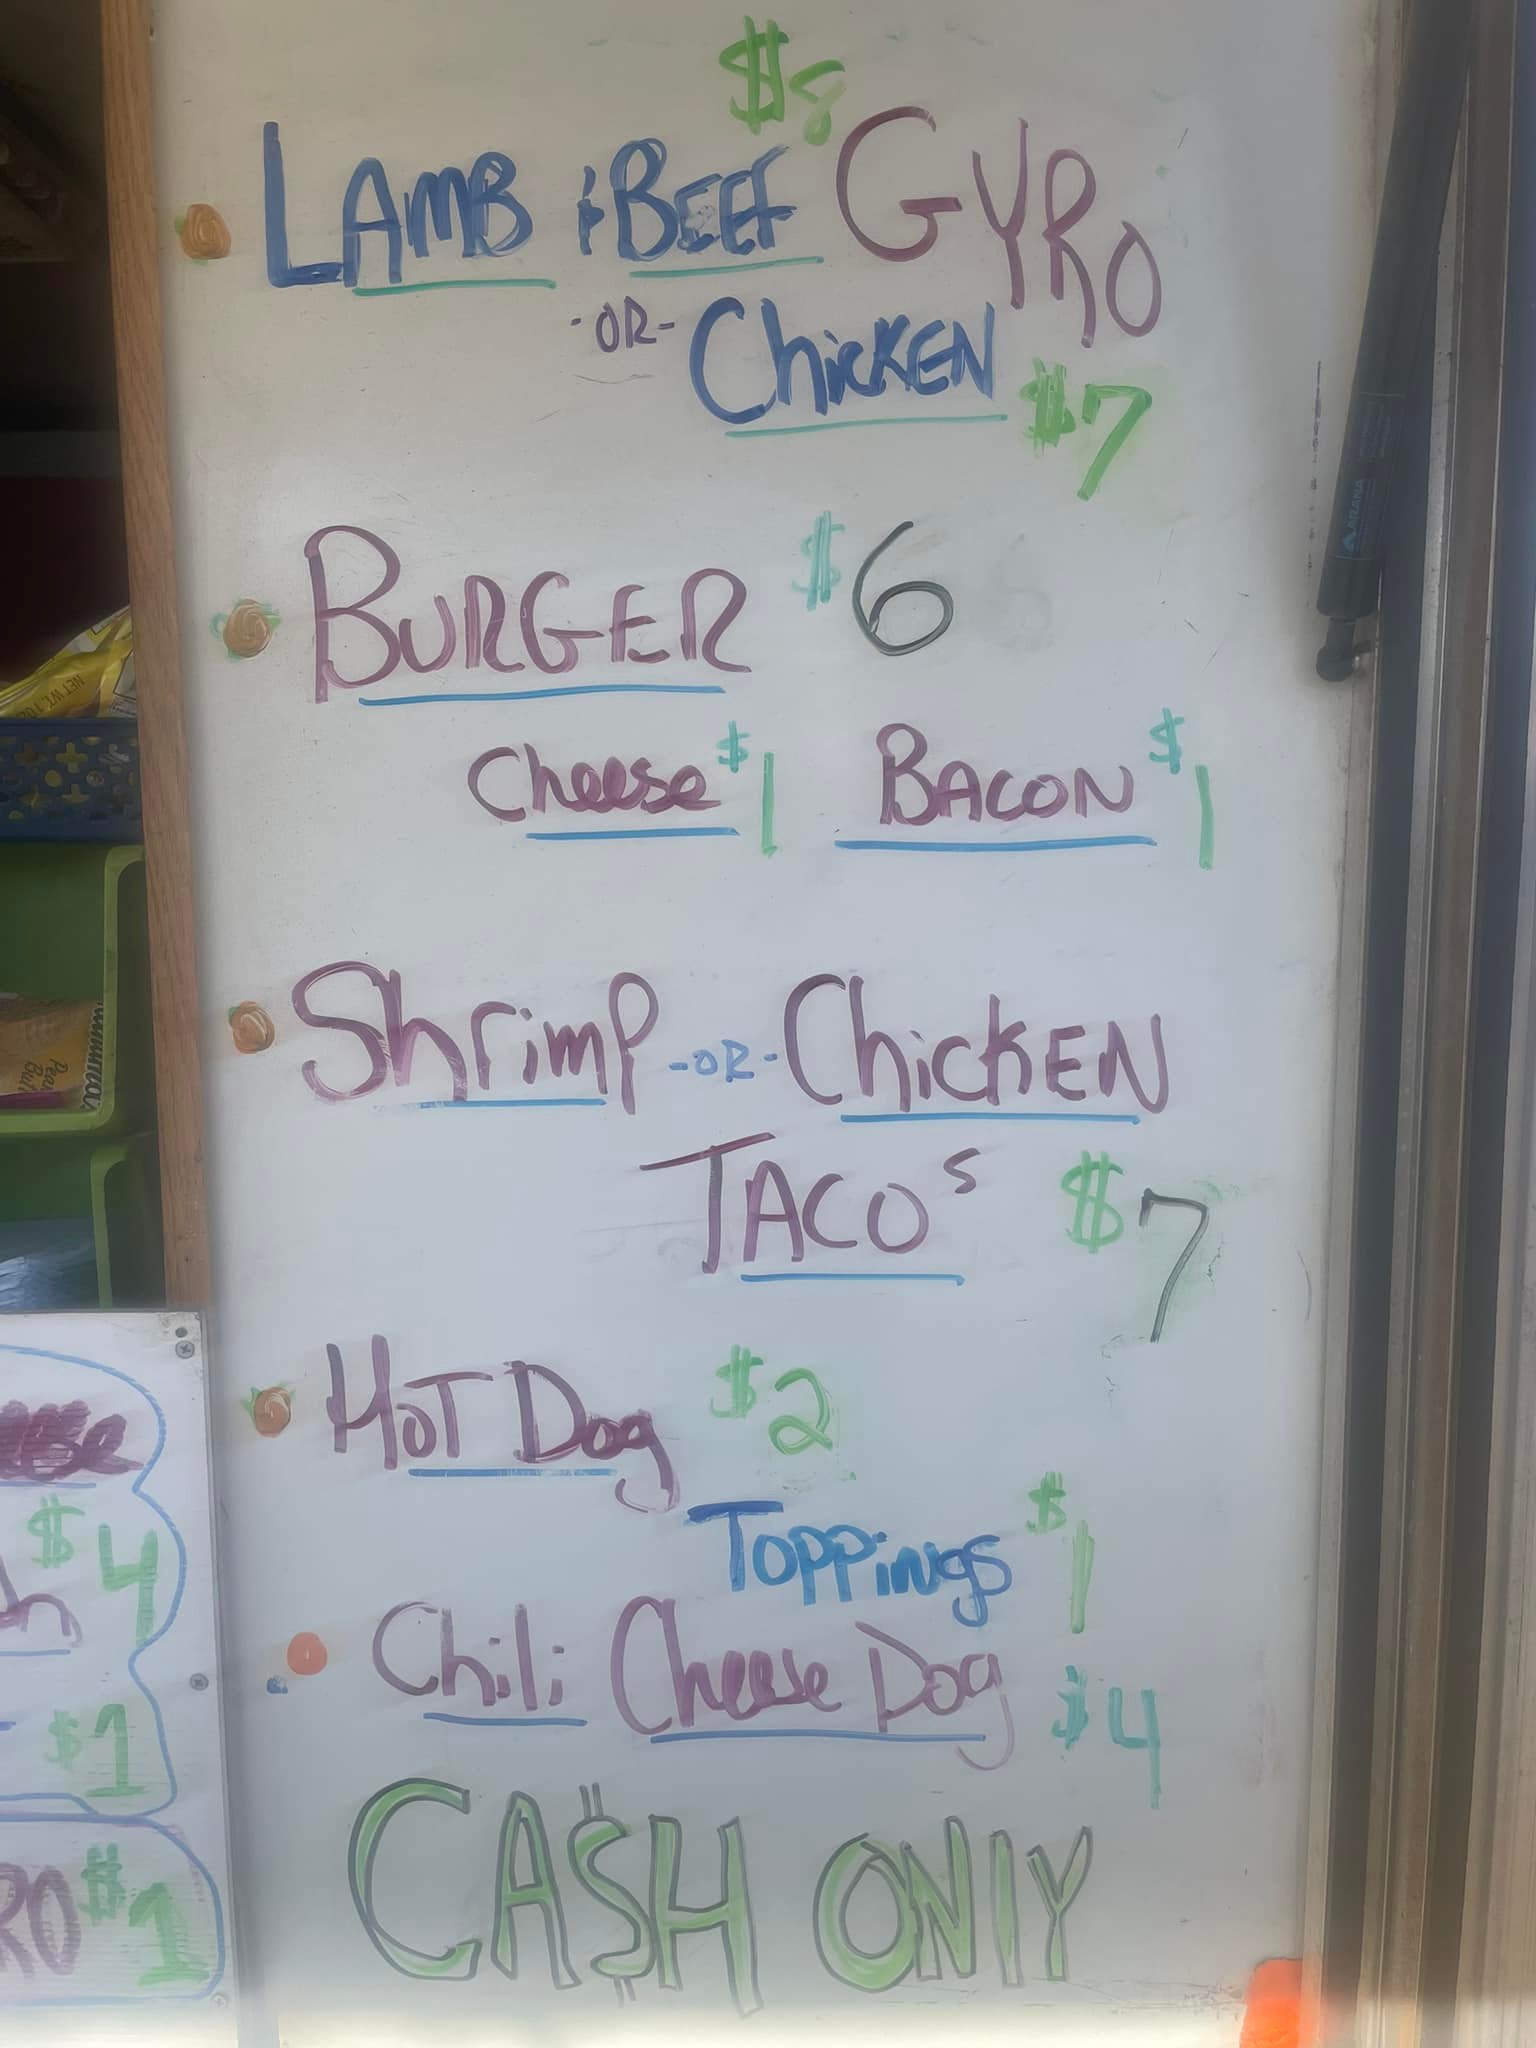 $8
LAMB & BEEF GYRO
-OR- ChicKEN $7
BURGER $6
Cheese $1 BACON $1
Shrimp -OR- ChicKEN
TACOS $7
HOT DOg $2
TOPPiNgS $1
Chili Cheese Dog $4
CA$H ONlY
$4
$1
RO $1
NET WT. 1 OZ
ARANA